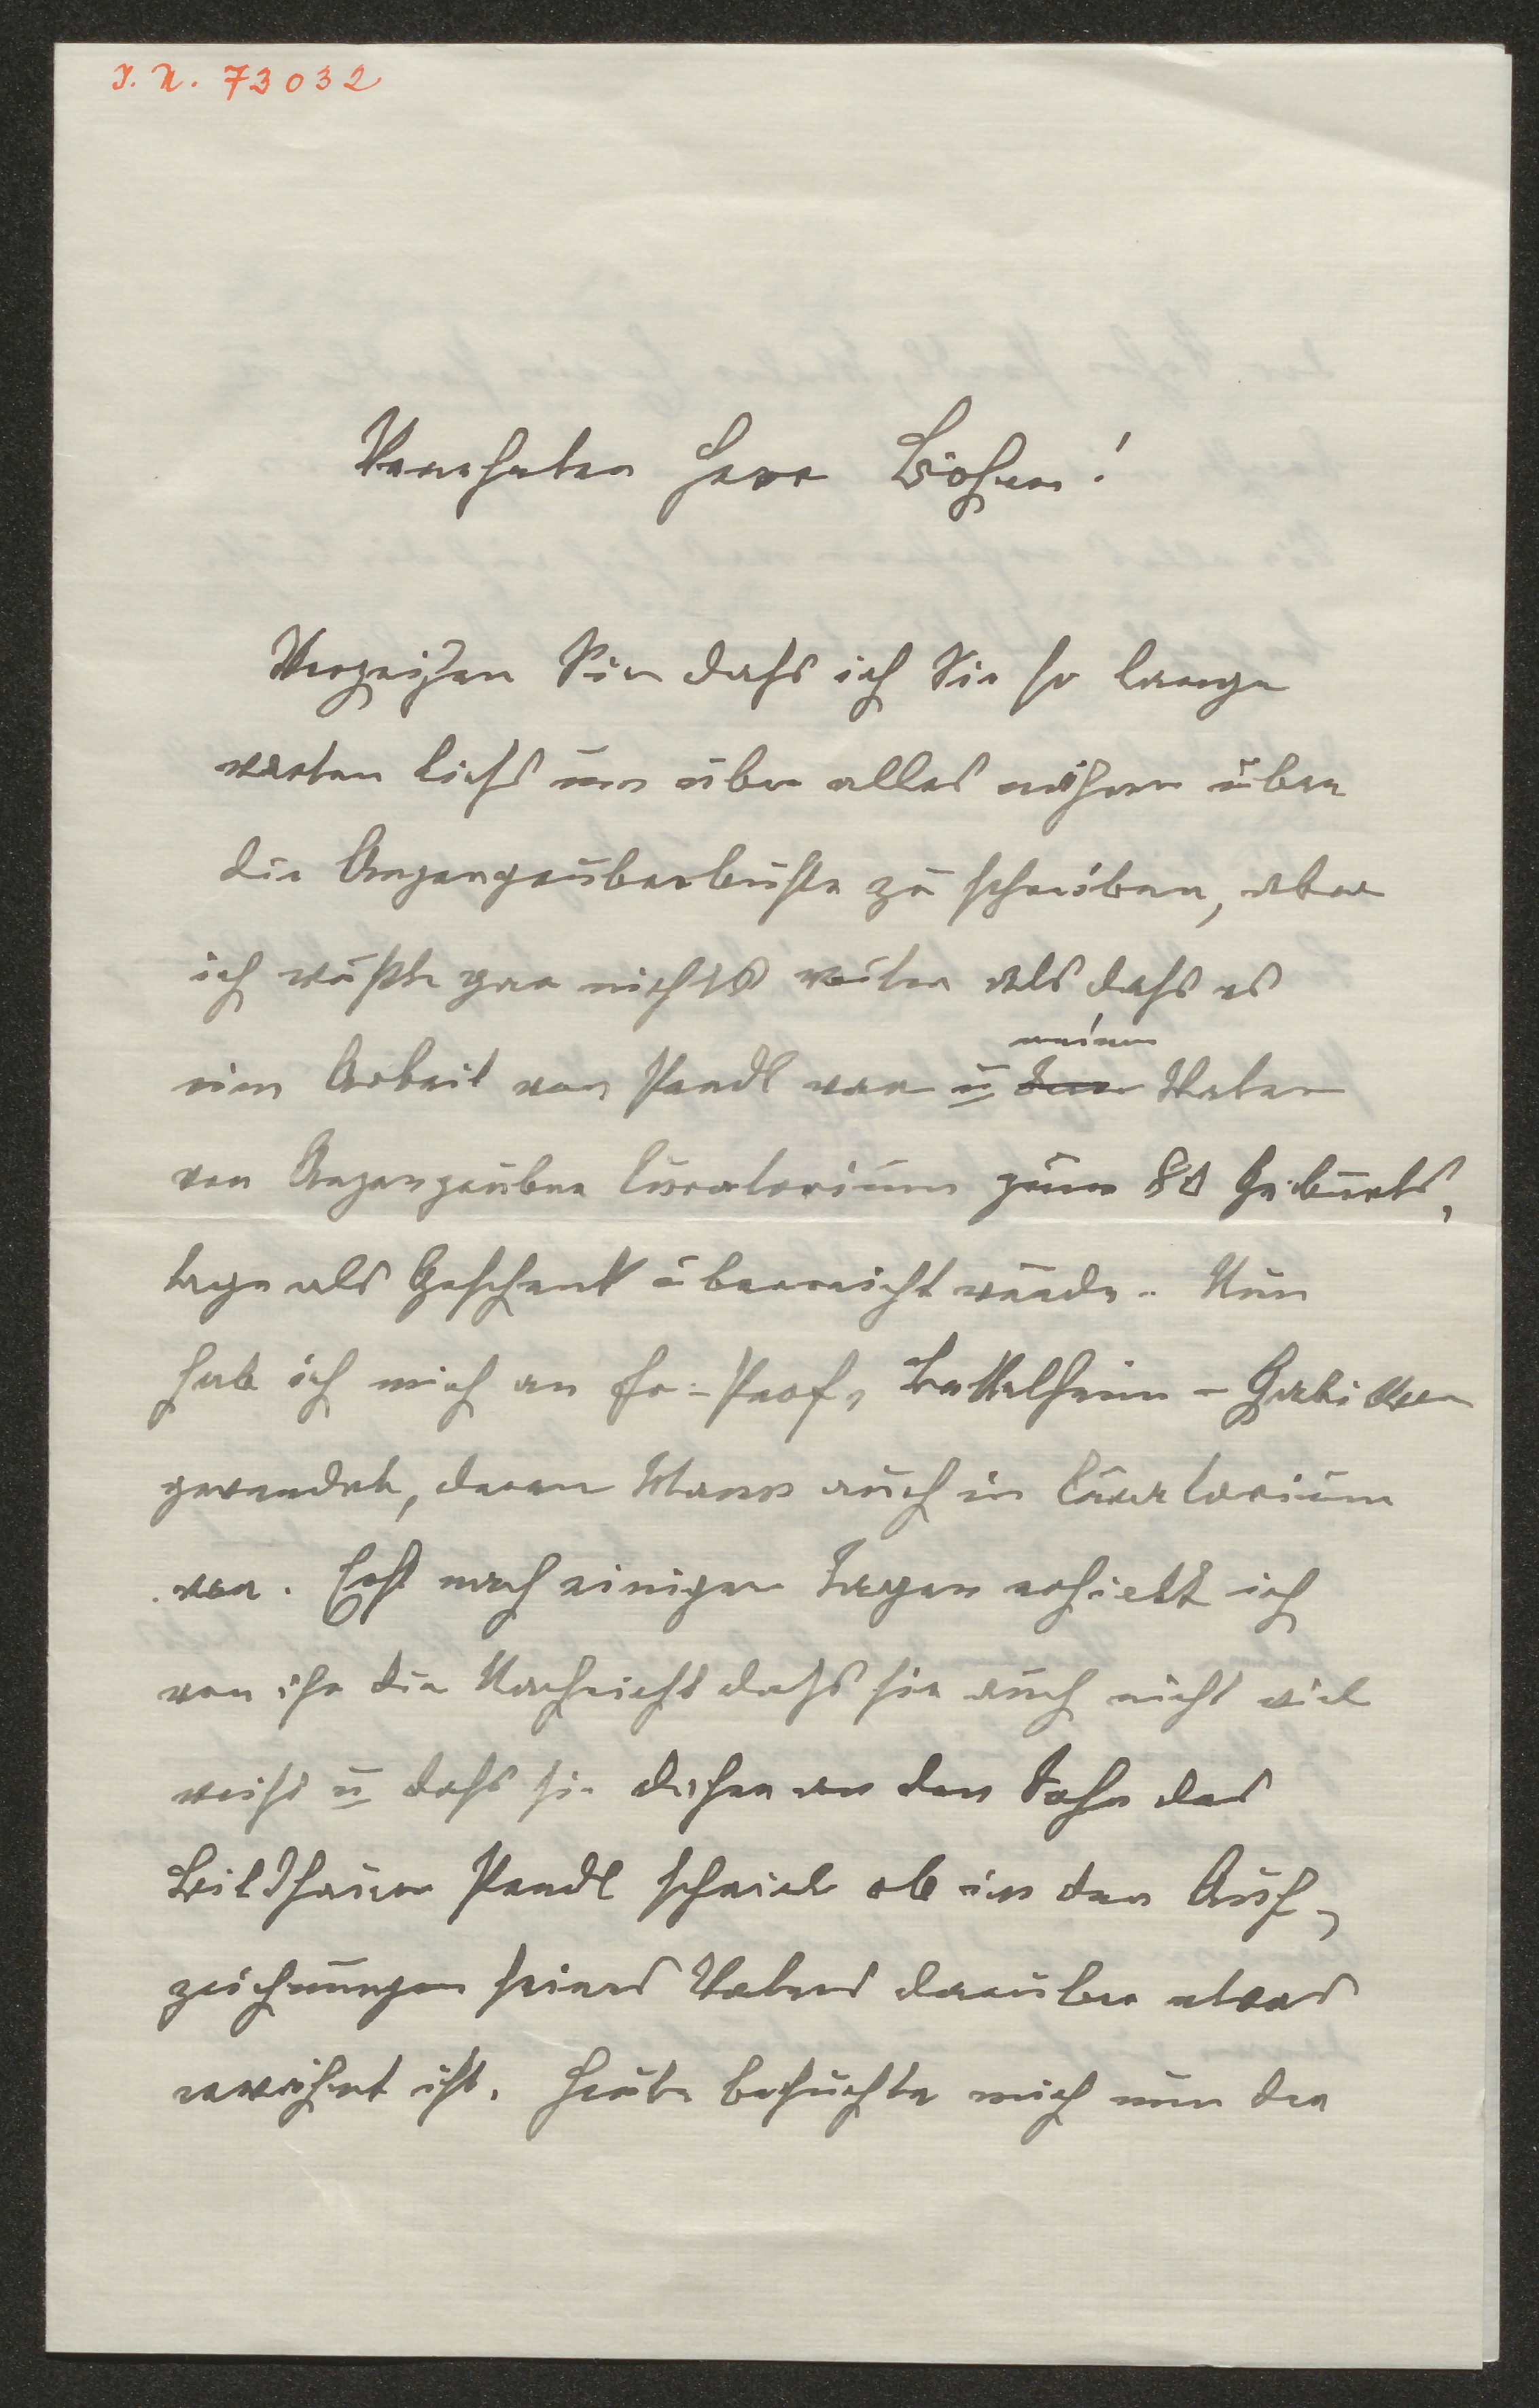 I. N. 73032
Verehrter Herr Böhm!
Verzeihen Sie dass ich Sie so lange
warten liess um über alles nähere über
die Anzengruberbüste zu schreiben, aber
ich wusste gar nichts weiter als dass es
eine Arbeit von Pendl war u meinem Vater
von Anzengruber Curatorium zum 80 Geburts,
tage als Geschenk überreicht wurde. Nun
hab ich mich an Fr. Prof. Bettelheim-Gabillon
gewendet, deren Mann auch im Curatorium
war. Erst nach einigen Tagen erhielt ich
von ihr die Nachricht dass sie auch nicht viel
weiss u dass sie daher an den Sohn des
Bildhauer Pendl schrieb ob in den Auf-
zeichnungen seines Vaters darüber etwas
erwähnt ist. Heute besuchte mich nun der